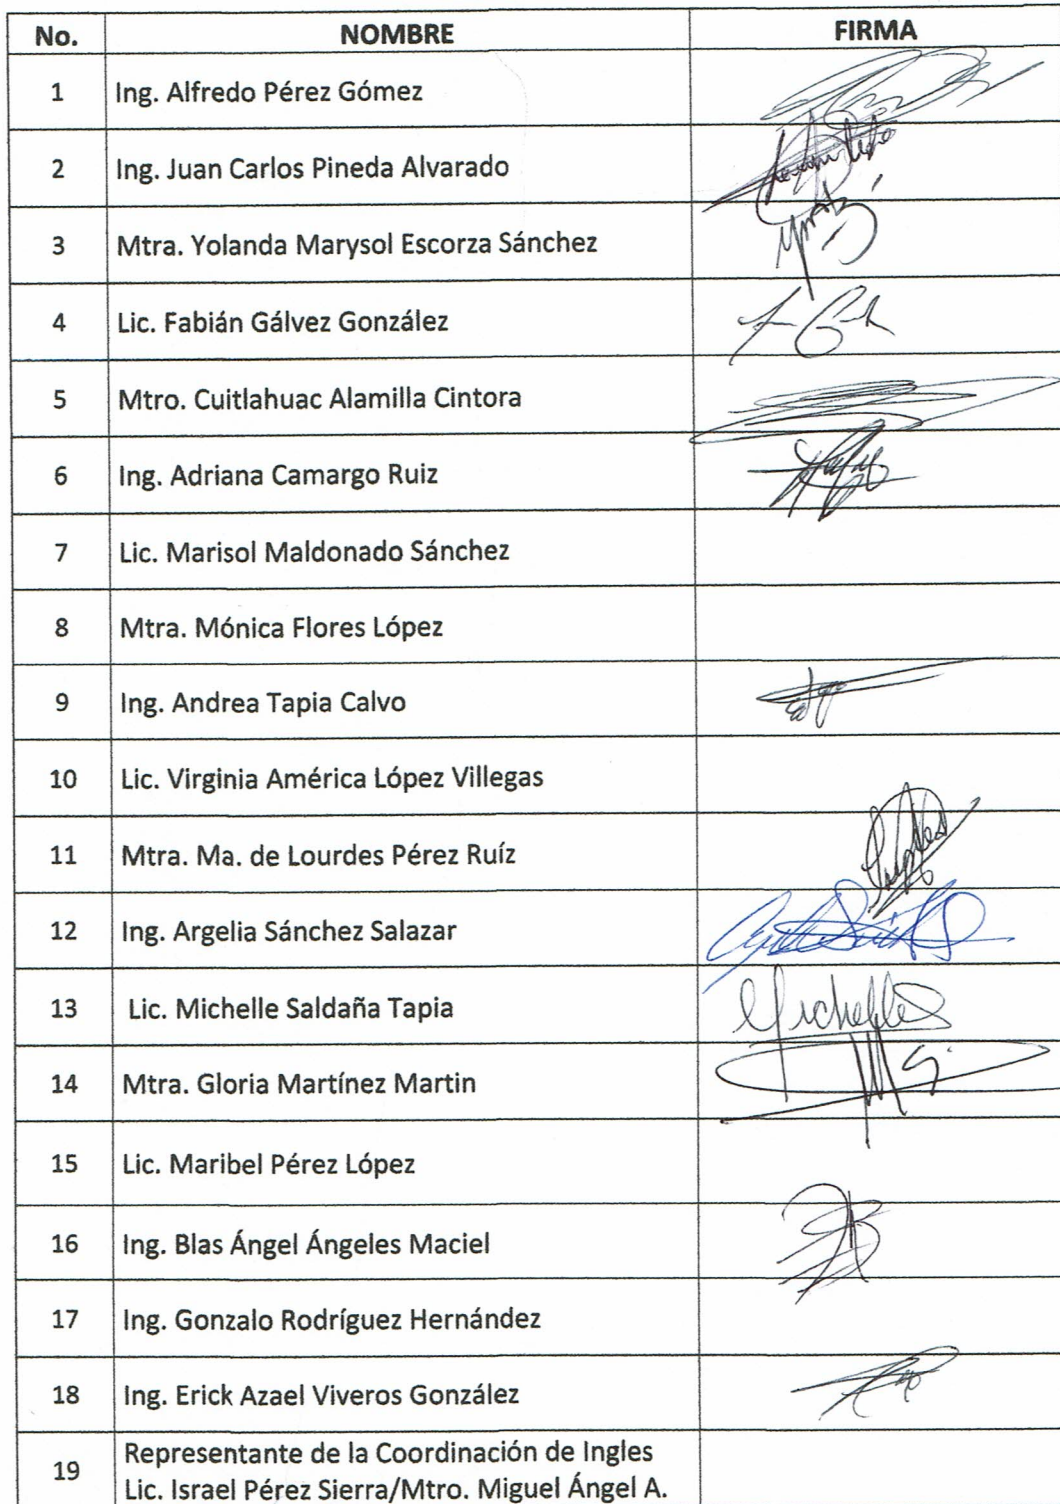 No. NOMBRE FIRMA
1 Ing. Alfredo Pérez Gómez
2 Ing. Juan Carlos Pineda Alvarado
3 Mtra. Yolanda Marysol Escorza Sánchez
4 Lic. Fabián Gálvez González
5 Mtro. Cuitlahuac Alamilla Cintora
6 Ing. Adriana Camargo Ruiz
7 Lic. Marisol Maldonado Sánchez
8 Mtra. Mónica Flores López
9 Ing. Andrea Tapia Calvo
10 Lic. Virginia América López Villegas
11 Mtra. Ma. de Lourdes Pérez Ruíz
12 Ing. Argelia Sánchez Salazar
13 Lic. Michelle Saldaña Tapia Michelle
14 Mtra. Gloria Martínez Martin
15 Lic. Maribel Pérez López
16 Ing. Blas Ángel Ángeles Maciel
17 Ing. Gonzalo Rodríguez Hernández
18 Ing. Erick Azael Viveros González
19 Representante de la Coordinación de Ingles
Lic. Israel Pérez Sierra/Mtro. Miguel Ángel A.